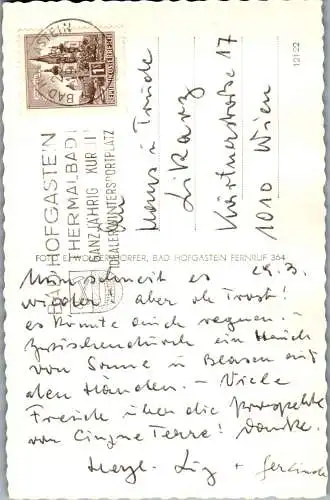 BAD HOFGASTEIN
BAD HOFGASTEIN
THERMALBAD
GANZJÄHRIG KUR
IDEALER WINTERSPORTPLATZ
REPUBLIK ÖSTERREICH
An
Hans u Trude
Likarz
Kärtnerstraße 17
1010 Wien
121/22
FOTO E. WOLKERSDORFER, BAD HOFGASTEIN FERNRUF 364
29. 3.
Nun schneit es
wieder aber oh Trost!
es könnte auch regnen. -
Zwischendurch ein Hauch
von Sonne u Blasen auf
den Händen. - Viele
Freude über die Prospekte
von Cinque Terre! Danke.
Herzl. Liz + Gerlinde